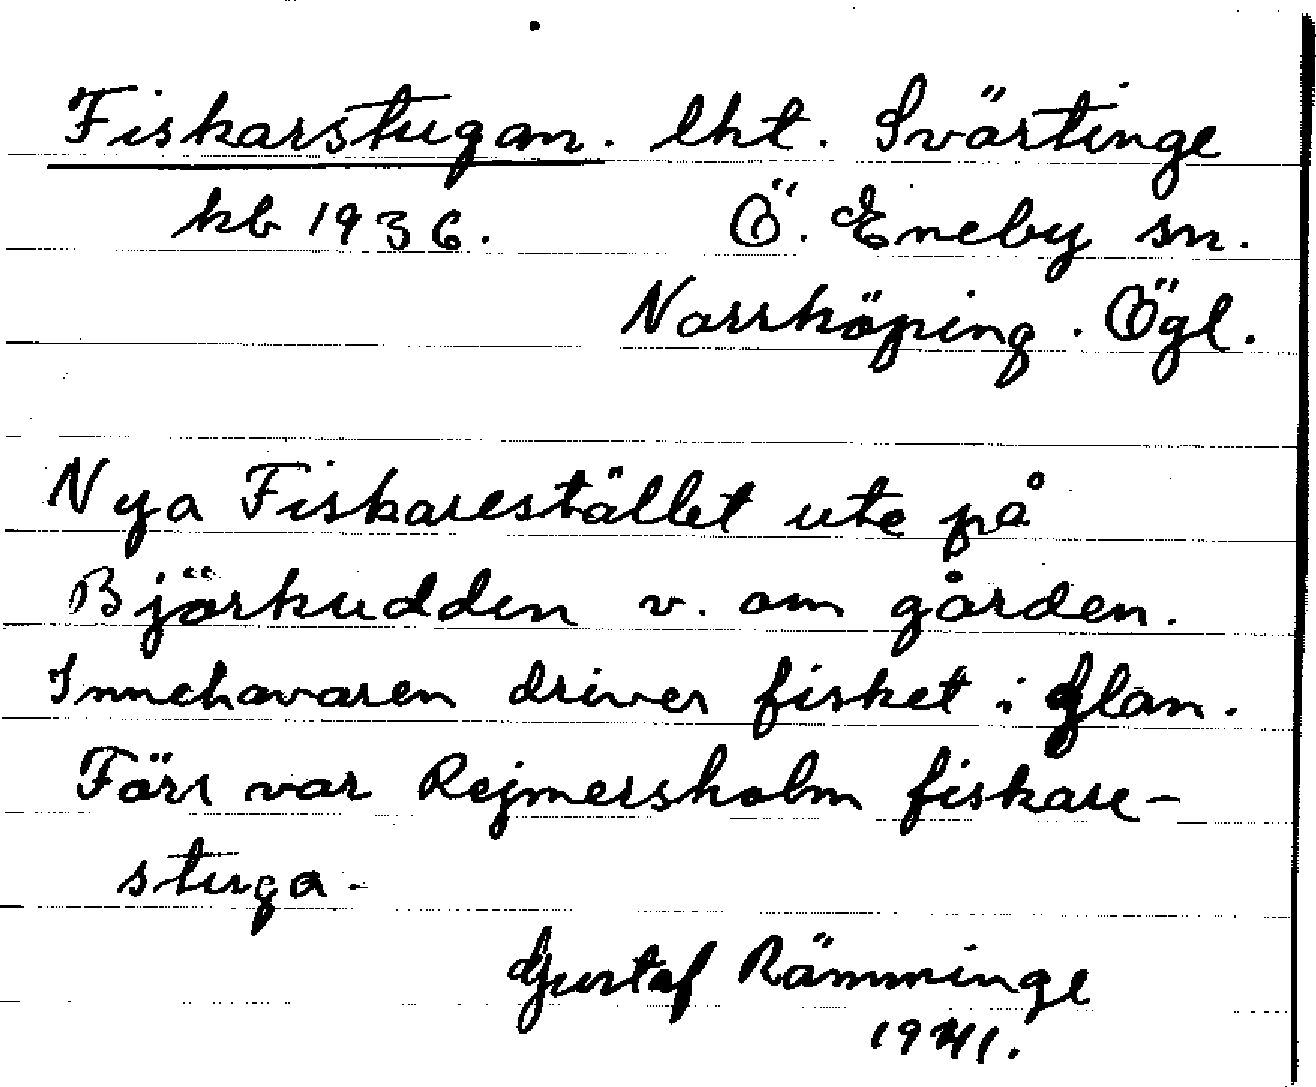 Fiskarstugan. lht. Svärtinge
kb 1936. Ö. Eneby sn.
Norrköping. Ögl.
Nya Fiskarestället ute på
Björkudden v. om gården.
Innehavaren driver fisket i Glan.
Förr var Rejmersholm fiskare-
stuga.
Gustaf Rämminge
1941.